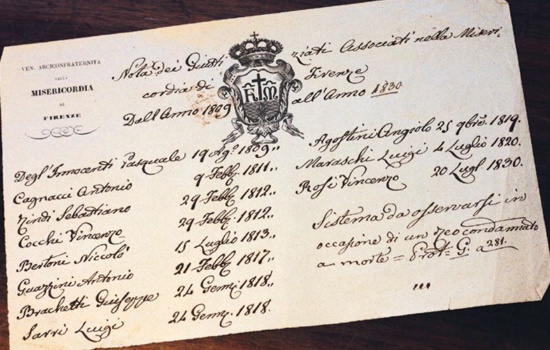 VEN. ARCICONFRATERNITA
DELLA
MISERICORDIA
DI
FIRENZE
Nota dei Giusti ziati Associati nella Miseri
cordia di Firenze
Dall'Anno 1809 all'Anno 1830
Degl'Innocenti Pasquale 19 Ago. 1809
Cagnacci Antonio 9 Febb. 1811
Nindi Sebastiano 29 Febb. 1812
Cocchi Vincenzo 29 Febb. 1812
Bertoni Niccolò 15 Luglio 1813
Guazzini Antonio 21 Febb. 1817
Brachetti Giuseppe 24 Gen. 1818
Sarri Luigi 24 Gen. 1818
Agostini Angiolo 25 9bre. 1819.
Maraschi Luigi 4 Luglio 1820.
Rosi Vincenzo 20 Lugl 1830.
Sistema da osservarsi in
occasione di un Reo condannato
a morte = Prot. G. a 281.